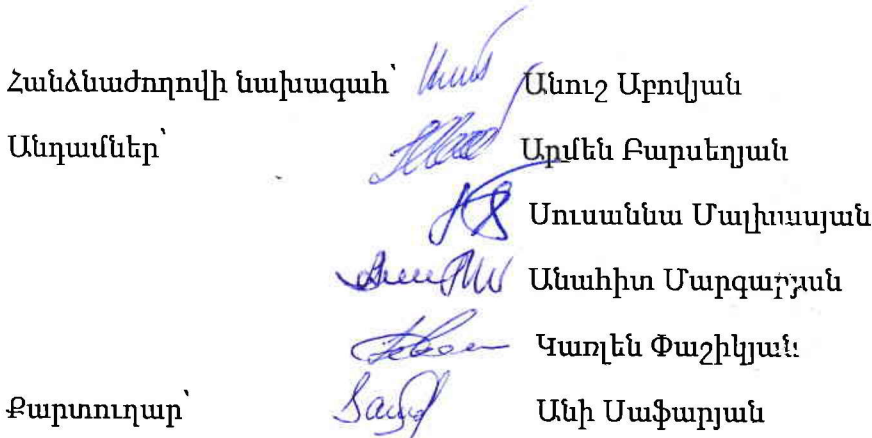 Հանձնաժողովի նախագահ՝ Անուշ Աբովյան
Անդամներ՝ Արմեն Բարսեղյան
Սուսաննա Մալխասյան
Անահիտ Մարգարյան
Կառլեն Փաշիկյան
Քարտուղար՝ Անի Սաֆարյան